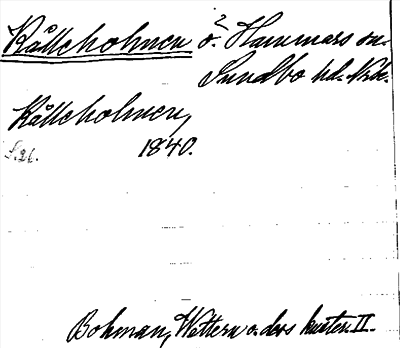 Kålleholmen ö. Hammars sn.
Sundbo hd. Nke.
Kålleholmen,
S. 26. 1840.
Bohman, Wettern o. dess kuster II.